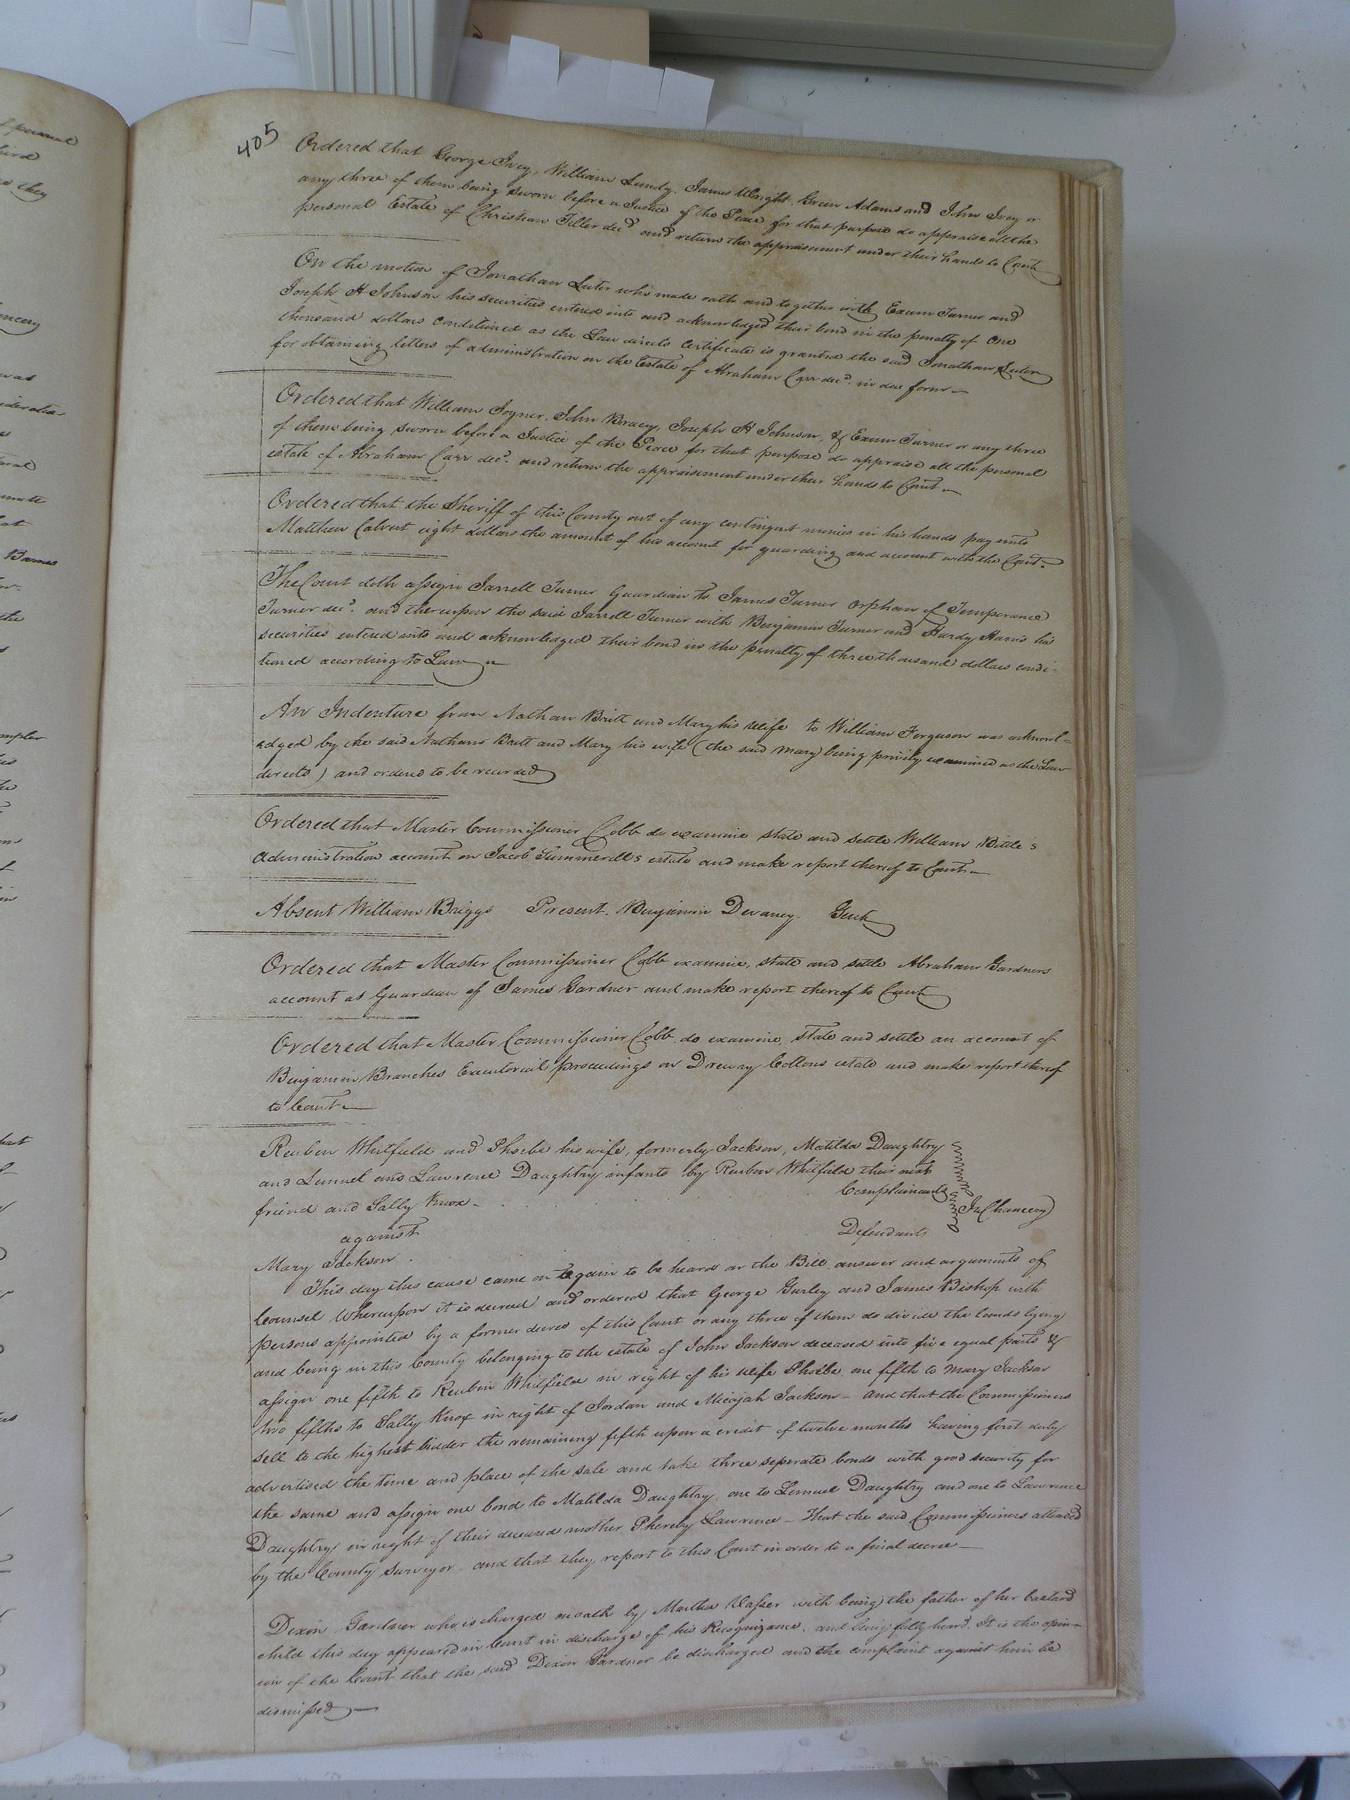 405
Ordered that George Ivey, William Lundy, James Wright, Green Adams and John Ivey or
any three of them being sworn before a Justice of the Peace for that purpose do appraise all the
personal Estate of Christian Tiller decd and return the appraisement under their hands to Court
On the motion of Jonathan Luter who made oath and together with Exum Turner and
Joseph H Johnson his securities entered into and acknowledged their bond in the penalty of one
thousand dollars conditioned as the Law directs Certificate is granted the said Jonathan Luter
for obtaining letters of administration on the Estate of Abraham Carr decd. in due form
Ordered that William Joyner, John Bracy, Joseph H Johnson, & Exum Turner or any three
of them being sworn before a Justice of the Peace for that purpose do appraise all the personal
estate of Abraham Carr decd. and return the appraisement under their hands to Court
Ordered that the Sheriff of this County out of any contingent monies in his hands pay unto
Matthew Calvert eight dollars the amount of his account for guarding and account with the Court.
The Court doth assign Jarrell Turner Guardian to James Turner orphan of Temperance
Turner decd. and thereupon the said Jarrell Turner with Benjamin Turner and Hardy Harris his
securities entered into and acknowledged their bond in the penalty of three thousand dollars condi-
tioned according to Law
An Indenture from Nathan Britt and Mary his wife to William Ferguson was acknowl-
edged by the said Nathan Britt and Mary his wife (the said Mary being privily examined as the Law
directs) and ordered to be recorded
Ordered that Master Commissioner Cobb do examine state and settle William Bittle's
administration account on Jacob Summerell's estate and make report thereof to Court
Absent William Briggs Present. Benjamin Devaney. Gent
Ordered that Master Commissioner Cobb examine, state and settle Abraham Gardners
account as Guardian of James Gardner and make report thereof to Court
Ordered that Master Commissioner Cobb do examine, state and settle an account of
Benjamin Branches Executorial proceedings on Drewry Cottons estate and make report thereof
to Court
Reuben Whitfield and Phoebe his wife, formerly Jackson, Matilda Daughtry
and Lemuel and Lawrence Daughtry infants by Reuben Whitfield their next
friend and Sally Knox Complainants
against In Chancery
Mary Jackson Defendants
This day this cause came on again to be heard on the Bill, answer and arguments of
Counsel Whereupon it is decreed and ordered that George Gurley and James Bishop with
persons appointed by a former decree of this Court or any three of them do divide the lands lying
and being in this County belonging to the estate of John Jackson deceased into five equal parts &
assign one fifth to Reubin Whitfield in right of his wife Phoebe one fifth to Mary Jackson
two fifths to Sally Knox in right of Jordan and Micajah Jackson - and that the Commissioners
sell to the highest bidder the remaining fifth upon a credit of twelve months having first duly
advertised the time and place of the sale and take three seperate bonds with good security for
the same and assign one bond to Matilda Daughtry, one to Lemuel Daughtry and one to Lawrence
Daughtry in right of their deceased mother Phereby Lawrence - That the said Commissioners attended
by the County Surveyor and that they report to this Court in order to a final decree
Dixon Gardner who is charged on oath by Martha with being the father of her bastard
child this day appeared in Court in discharge of his Recognizance, and being fully heard It is the opin-
ion of the Court that the said Dixon Gardner be discharged and the complaint against him be
dismissed